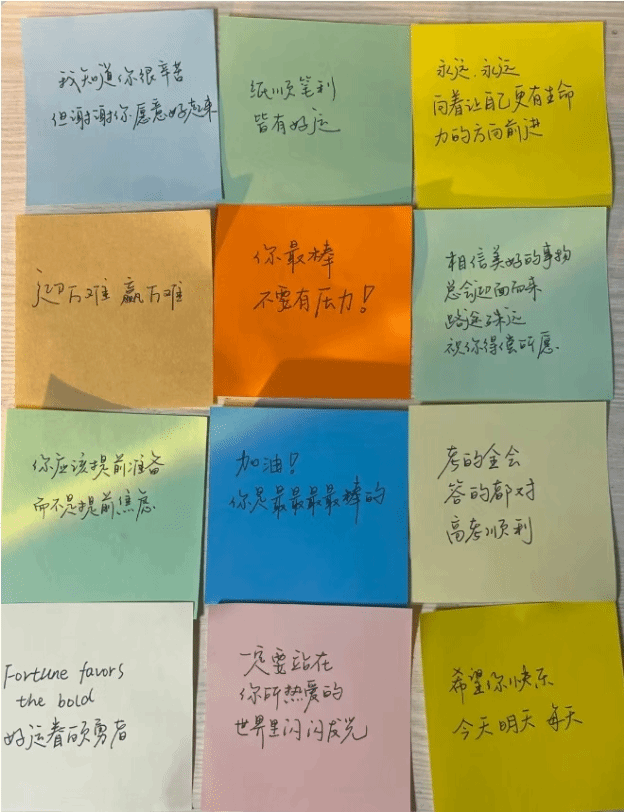 我知道你很辛苦
但谢谢你愿意好起来
纸顺笔利
皆有好运
永远、永远
向着让自己更有生命
力的方向前进
迎万难 赢万难
你最棒
不要有压力!
相信美好的事物
总会迎面而来
路途殊远
祝你得偿所愿.
你应该提前准备
而不是提前焦虑
加油!
你是最最最最棒的
考的全会
答的都对
高考顺利
Fortune favors
the bold
好运眷顾勇者
一定要站在
你所热爱的
世界里闪闪发光
希望你快乐
今天 明天 每天